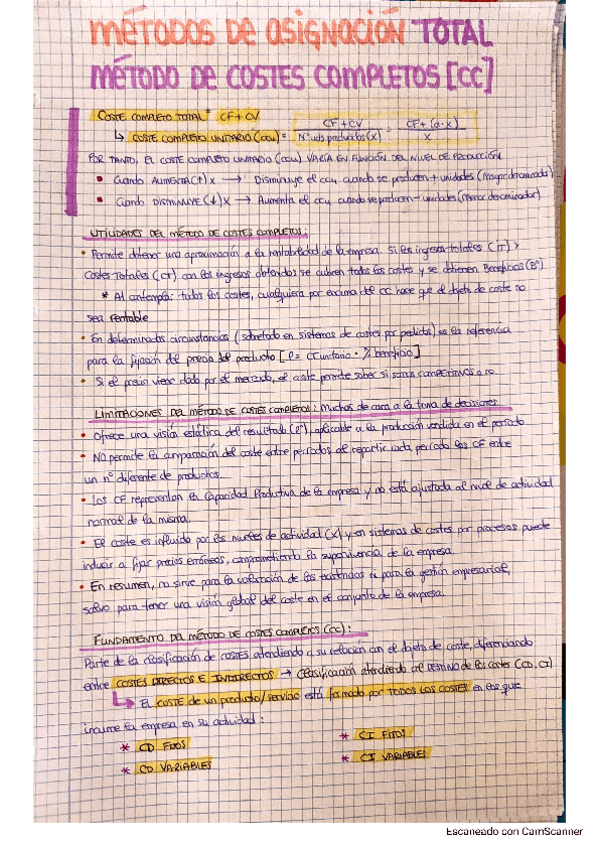 MÉTODOS DE ASIGNACIÓN TOTAL
MÉTODO DE COSTES COMPLETOS [CC]
COSTE COMPLETO TOTAL = CF + CV
↳ COSTE COMPLETO UNITARIO (ccu) = CF + CV / Nº uds producidas (x) = CF + (a·x) / x
POR TANTO, EL COSTE COMPLETO UNITARIO (ccu) VARÍA EN FUNCIÓN DEL NIVEL DE PRODUCCIÓN
• Cuando AUMENTA (↑) X → Disminuye el ccu cuando se producen + unidades (Mayor denominador)
• Cuando DISMINUYE (↓) X → Aumenta el ccu cuando se producen - unidades (Menor denominador)
UTILIDADES DEL MÉTODO DE COSTES COMPLETOS:
• Permite obtener una aproximación a la rentabilidad de la empresa. Si los ingresos totales (IT) >
Costes Totales (CT) con los ingresos obtenidos se cubren todos los costes y se obtienen Beneficios (Bº)
* Al contemplar todos los costes, cualquiera por encima del CC hace que el objeto de coste no
sea rentable
• En determinadas circunstancias (sobretodo en sistemas de costes por pedido) es la referencia
para la fijación del precio del producto [P = CT unitario · % beneficio]
• Si el precio viene dado por el mercado, el coste permite saber si somos competitivos o no.
LIMITACIONES DEL MÉTODO DE COSTES COMPLETOS: Muchos de cara a la toma de decisiones
• Ofrece una visión estática del resultado (Rº), aplicable a la producción vendida en el periodo
• NO permite la comparación del coste entre periodos al repartir cada periodo los CF entre
un nº diferente de productos.
• Los CF representan la Capacidad Productiva de la empresa y no está ajustada al nivel de actividad
normal de la misma.
• El coste es influido por los niveles de actividad (X) y en sistemas de costes por procesos puede
inducir a fijar precios erróneos, comprometiendo la supervivencia de la empresa.
• En resumen, no sirve para la valoración de las existencias ni para la gestión empresarial,
salvo para tener una visión global del coste en el conjunto de la empresa.
FUNDAMENTO DEL MÉTODO DE COSTES COMPLETOS (CC):
Parte de la clasificación de COSTES atendiendo a su relación con el objeto de coste, diferenciando
entre COSTES DIRECTOS E INDIRECTOS → Clasificación atendiendo al DESTINO de los costes (CD, CI)
↳ EL COSTE de un producto/servicio está formado por TODOS LOS COSTES en los que
incurre la empresa en su actividad:
* CD FIJOS
* CI FIJOS
* CD VARIABLES
* CI VARIABLES
Escaneado con CamScanner